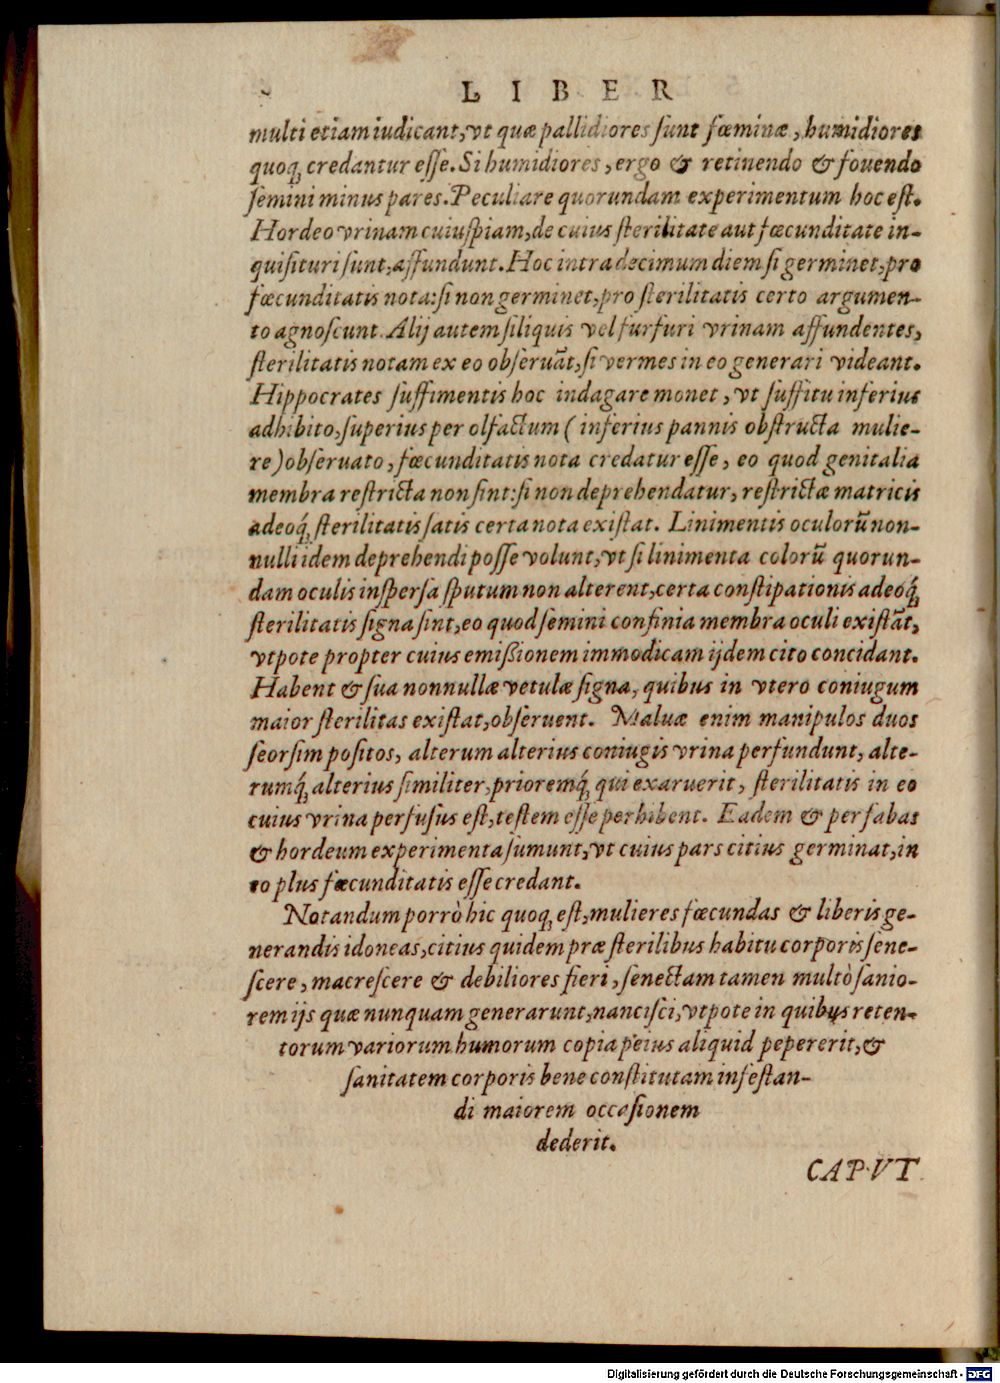 LIBER
multi etiam iudicant, vt quæ pallidiores sunt fœminæ, humidiores
quoq; credantur esse. Si humidiores, ergo & retinendo & fouendo
semini minus pares. Peculiare quorundam experimentum hoc est.
Hordeo vrinam cuiuspiam, de cuius sterilitate aut fœcunditate in-
quisituri sunt, affundunt. Hoc intra decimum diem si germinet, pro
fœcunditatis nota: si non germinet, pro sterilitatis certo argumen-
to agnoscunt. Alij autem siliquis vel furfuri vrinam affundentes,
sterilitatis notam ex eo obseruãt, si vermes in eo generari videant.
Hippocrates suffimentis hoc indagare monet, vt suffitu inferius
adhibito, superius per olfactum (inferius pannis obstructa mulie-
re) obseruato, fœcunditatis nota credatur esse, eo quod genitalia
membra restricta non sint: si non deprehendatur, restrictæ matricis
adeoq́; sterilitatis satis certa nota existat. Linimentis oculorũ non-
nulli idem deprehendi posse volunt, vt si linimenta colorũ quorun-
dam oculis inspersa sputum non alterent, certa constipationis adeoq́;
sterilitatis signa sint, eo quod semini confinia membra oculi existãt,
vtpote propter cuius emißionem immodicam ijdem cito concidant.
Habent & sua nonnullæ vetulæ signa, quibus in vtero coniugum
maior sterilitas existat, obseruent. Maluæ enim manipulos duos
seorsim positos, alterum alterius coniugis vrina perfundunt, alte-
rumq́; alterius similiter, prioremq́; qui exaruerit, sterilitatis in eo
cuius vrina perfusus est, testem esse perhibent. Eadem & per fabas
& hordeum experimenta sumunt, vt cuius pars citius germinat, in
eo plus fœcunditatis esse credant.
Notandum porrò hic quoq; est, mulieres fœcundas & liberis ge-
nerandis idoneas, citius quidem præ sterilibus habitu corporis sene-
scere, macrescere & debiliores fieri, senectam tamen multò sanio-
rem ijs quæ nunquam generarunt, nancisci, vtpote in quibus reten-
torum variorum humorum copia peius aliquid pepererit, &
sanitatem corporis bene constitutam infestan-
di maiorem occasionem
dederit.
CAPVT
Digitalisierung gefördert durch die Deutsche Forschungsgemeinschaft - DFG